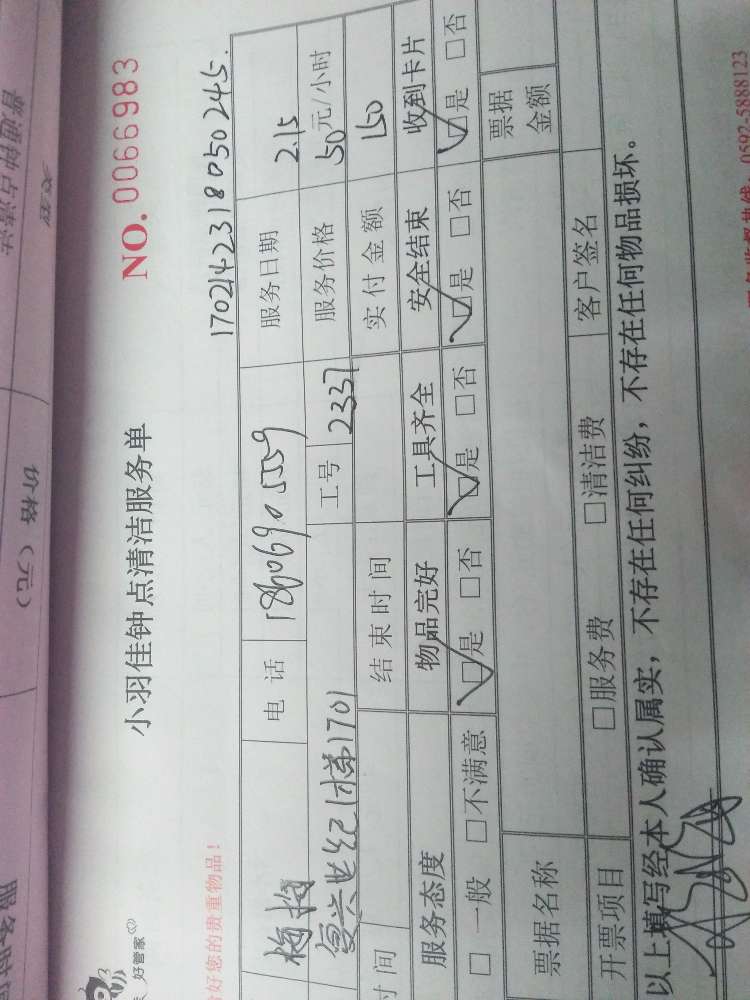 普通钟点清洁
价格（元）
服务时间
好管家
小羽佳钟点清洁服务单
NO. 0066983
好您的贵重物品！
170214231805024 5.
电话 18606905559 服务日期 2.15
复兴世纪1梯1701 工号 2337 服务价格 50元/小时
时间 结束时间 实付金额 150
服务态度 物品完好 工具齐全 安全结束 收到卡片
□ 一般 □不满意 ☑是 □否 ☑是 □否 ☑是 □否 ☑是 □否
票据名称 票据金额
开票项目 □服务费 □清洁费 客户签名
以上填写经本人确认属实，不存在任何纠纷，不存在任何物品损坏。
热线：0592-5888123